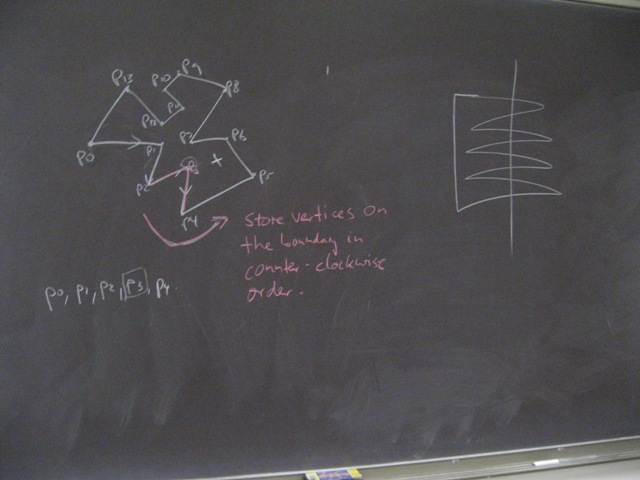 p13
p9
p10
p8
p11
p12
p0
p1
p7
p6
p2
p3
p5
p4
store vertices on
the bounday in
counter-clockwise
order.
p0, p1, p2, p3, p4.